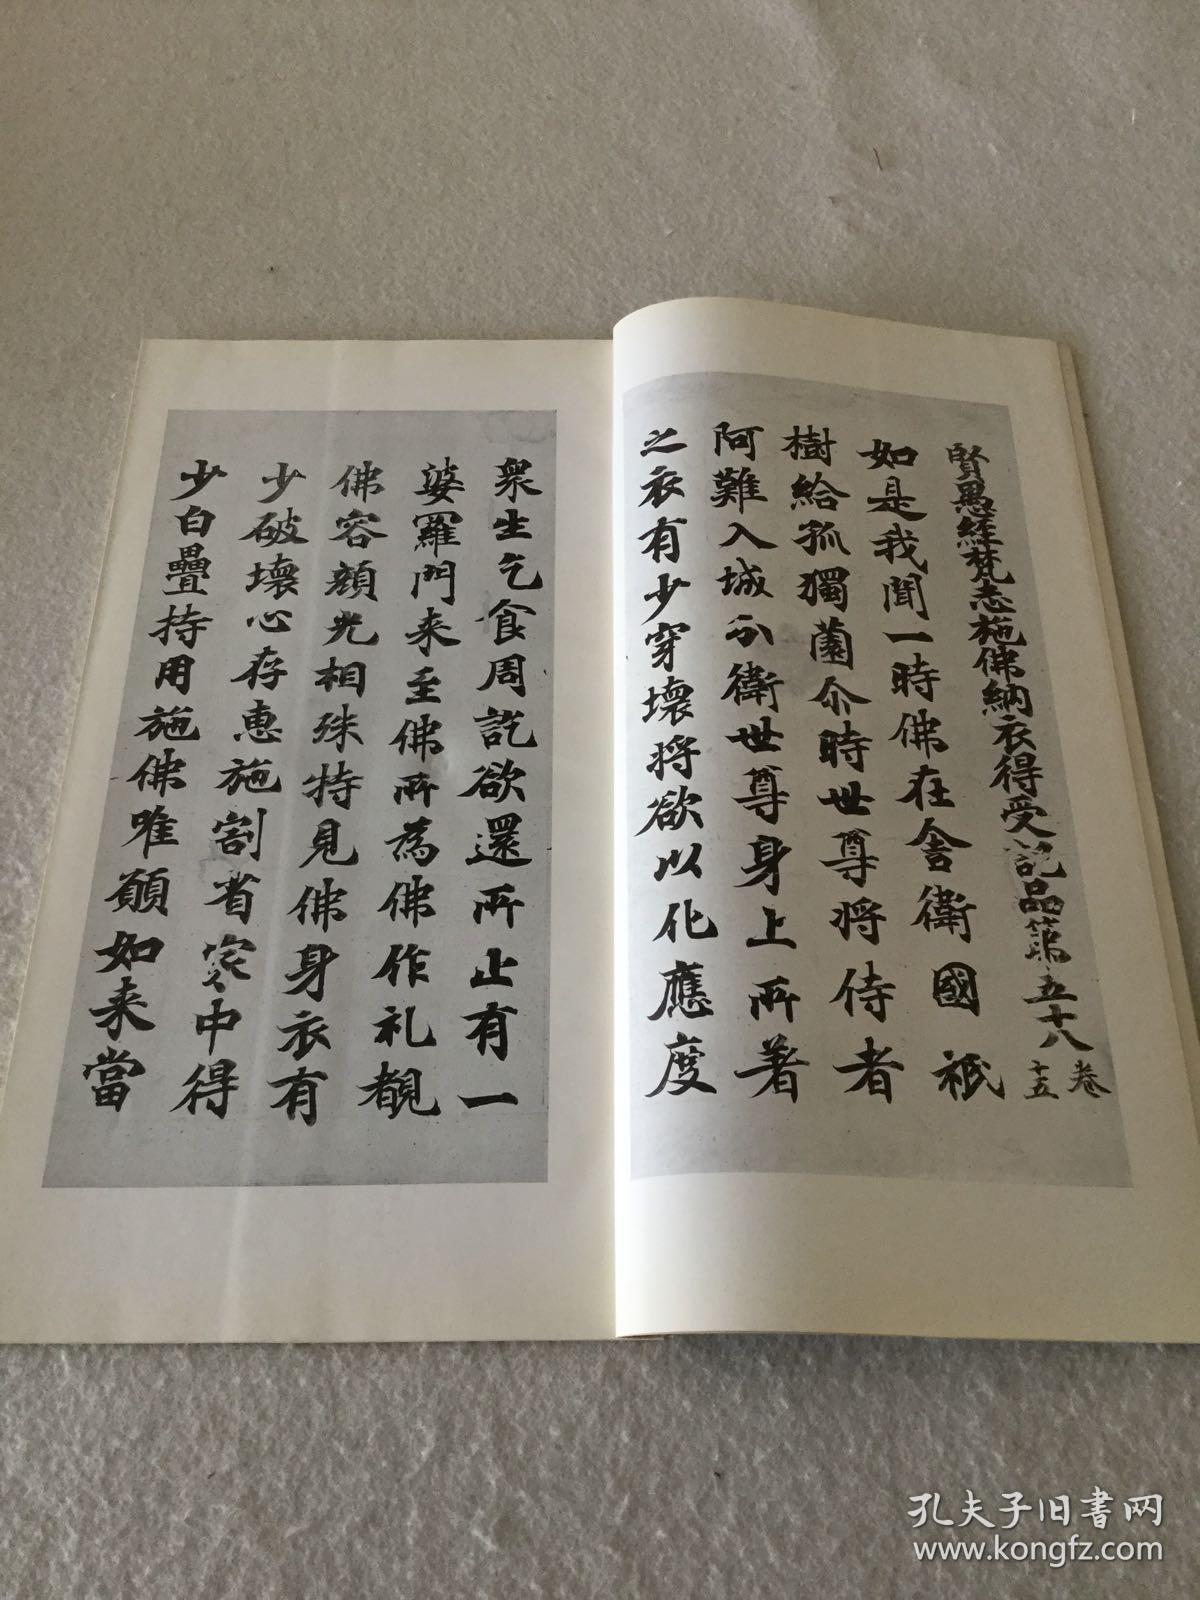 賢愚經梵志施佛納衣得受記品第五十八 卷十五
如是我聞一時佛在舍衛國祇
樹給孤獨薗尒時世尊將侍者
阿難入城分衛世尊身上所著
之衣有少穿壞將欲以化應度
衆生乞食周訖欲還所止有一
婆羅門来至佛所為佛作礼覩
佛容顔光相殊特見佛身衣有
少破壞心存惠施割省家中得
少白疊持用施佛唯願如来當
孔夫子旧书网
www.kongfz.com